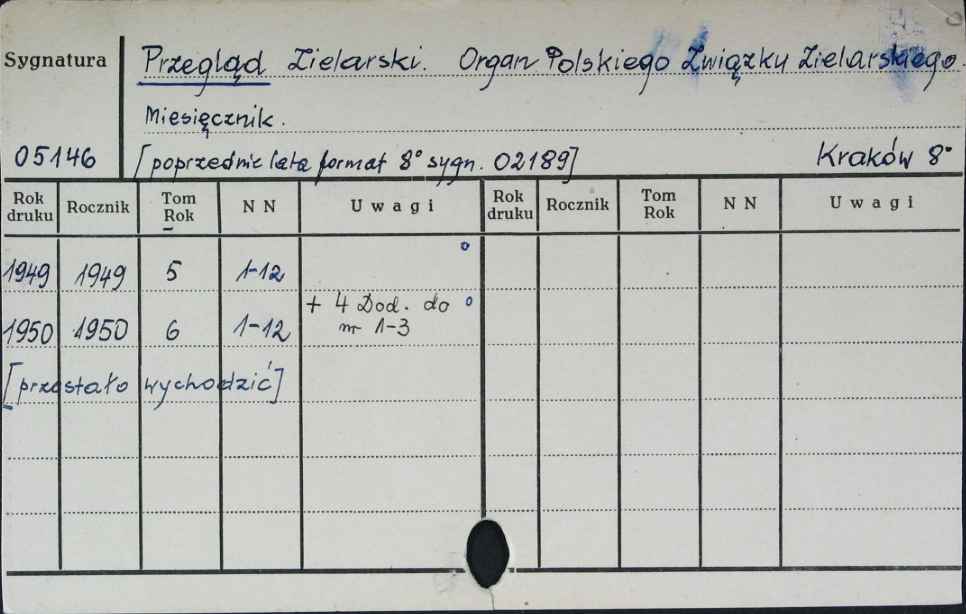 Sygnatura
Przegląd Zielarski. Organ Polskiego Związku Zielarskiego.
Miesięcznik.
05146
[poprzednie lata format 8° sygn. 02189]
Kraków 8°
Rok druku Rocznik Tom Rok N N Uwagi Rok druku Rocznik Tom Rok N N Uwagi
1949 1949 5 1-12
1950 1950 6 1-12 + 4 Dod. do
nr 1-3
[przestało wychodzić]